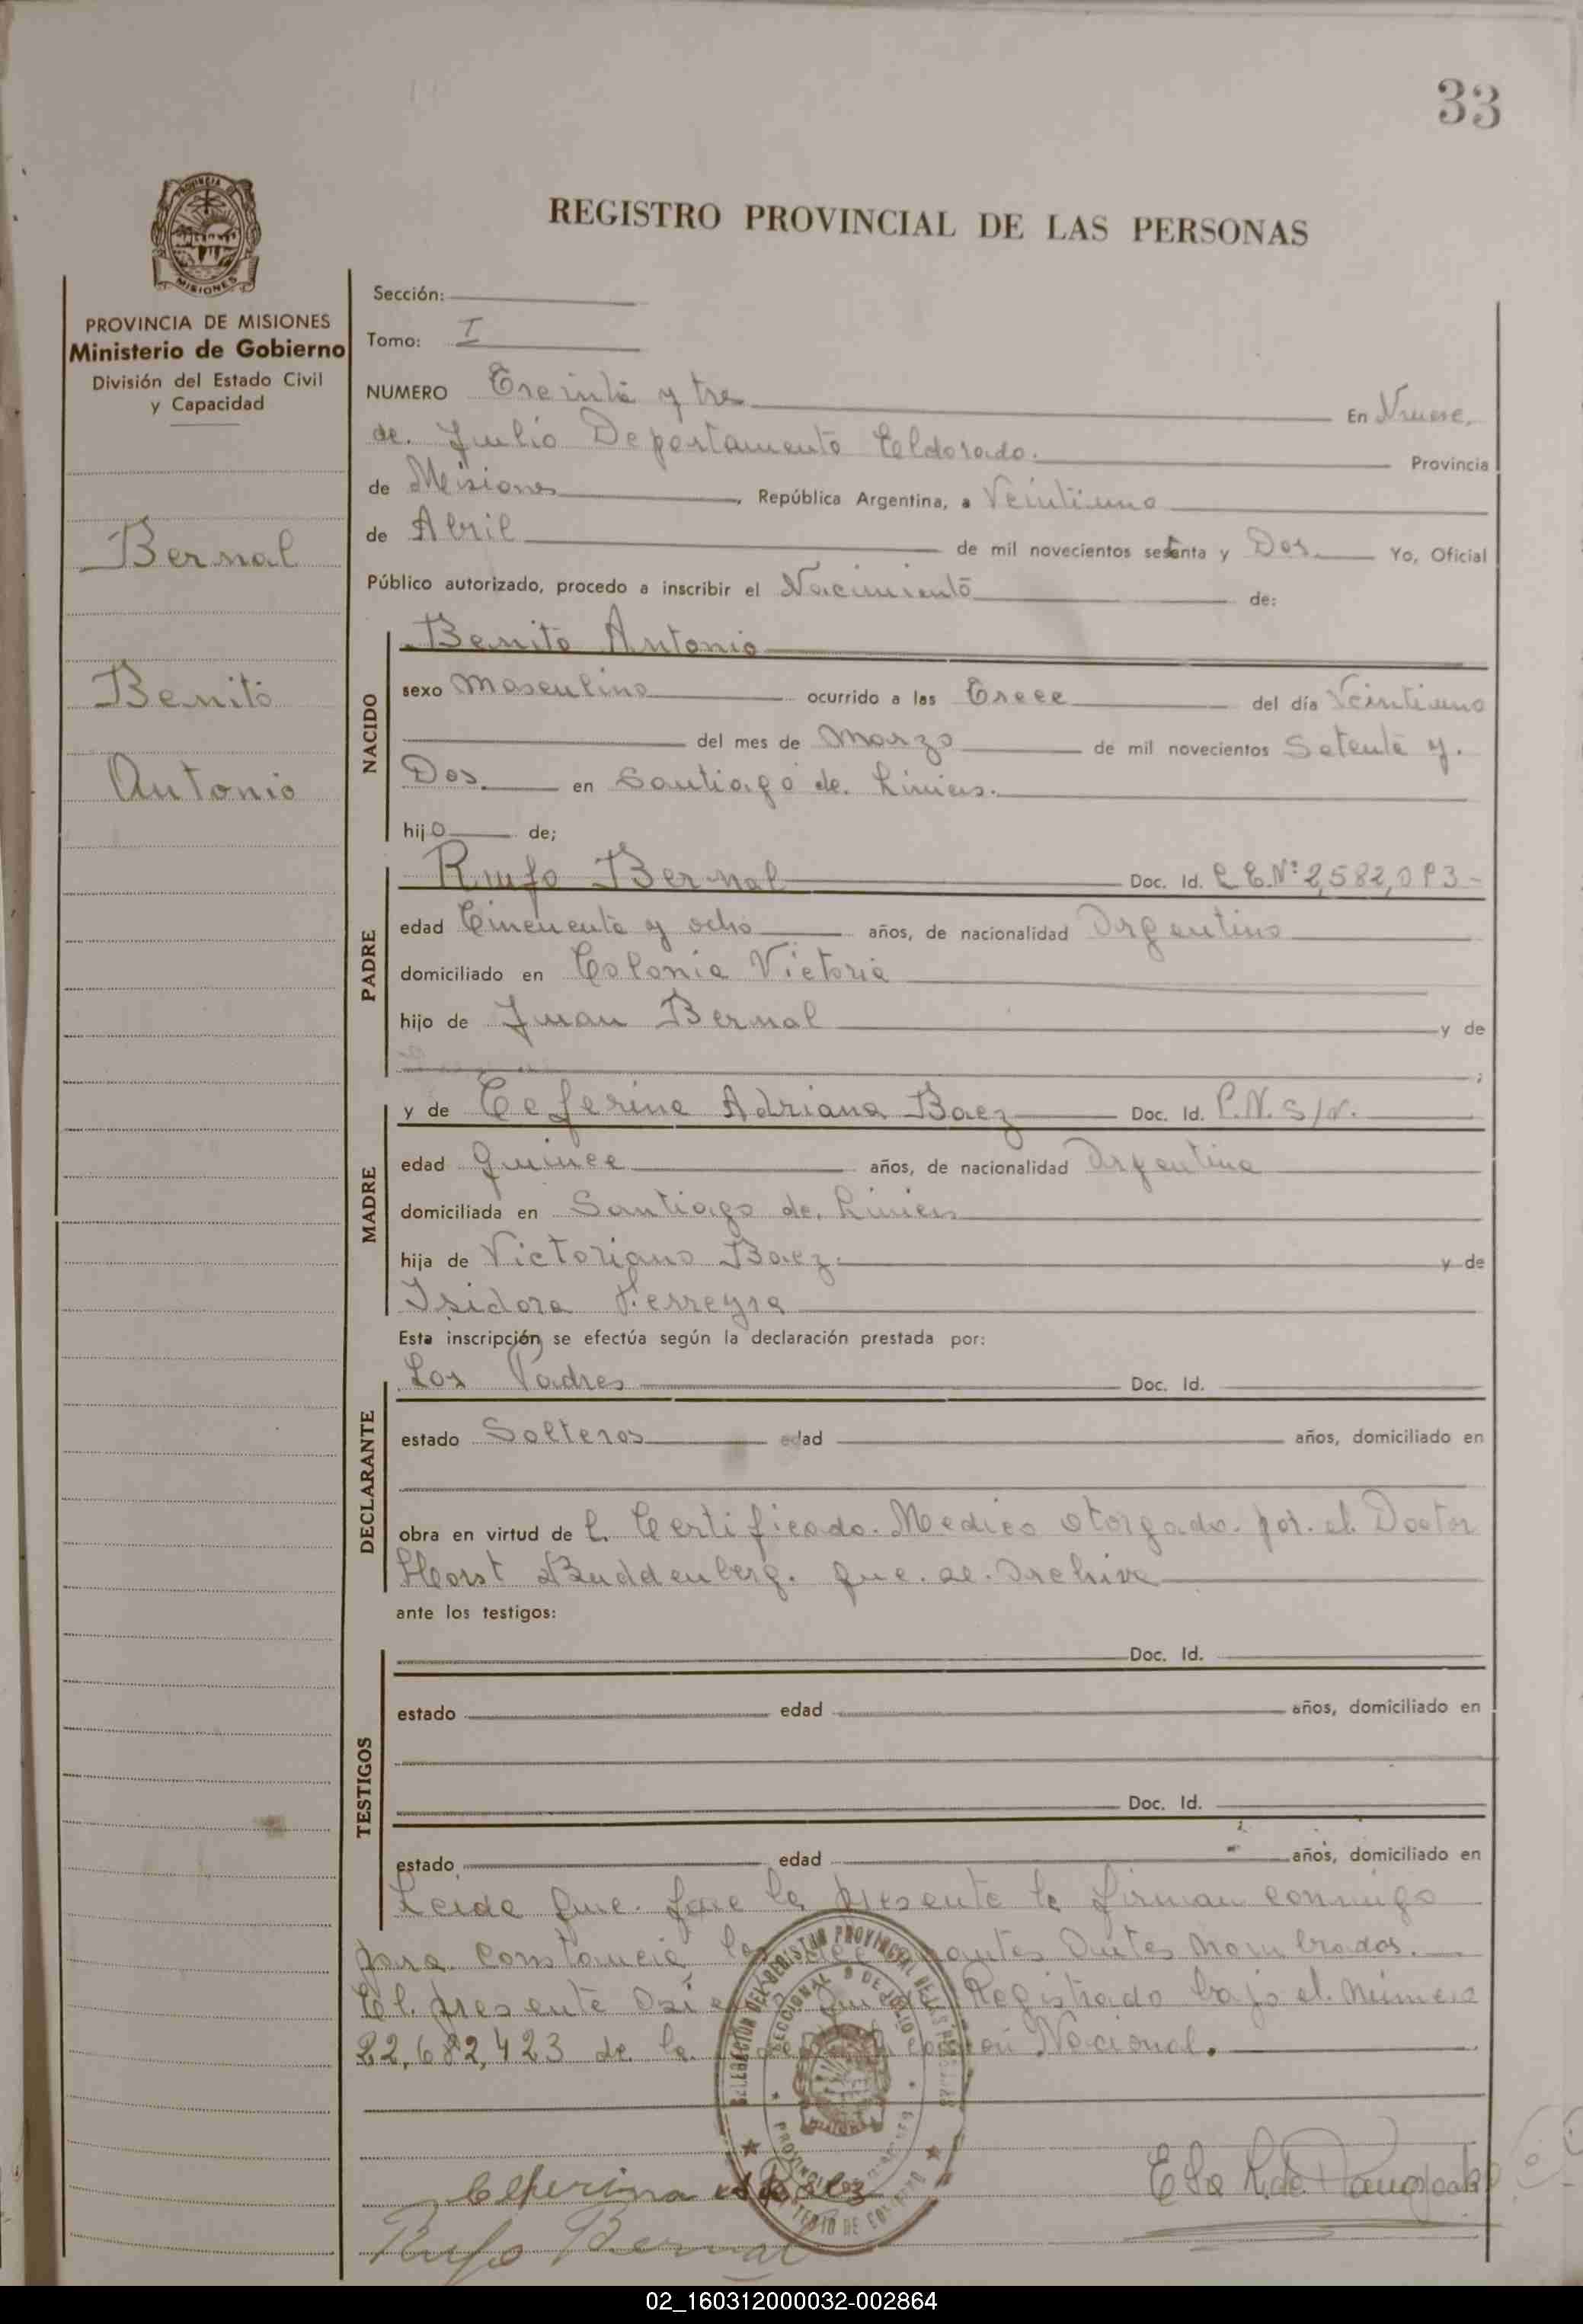 33
REGISTRO PROVINCIAL DE LAS PERSONAS
PROVINCIA DE MISIONES
Ministerio de Gobierno
División del Estado Civil
y Capacidad
Bernal
Benito
Antonio
Sección:
Tomo: I
NUMERO Treinta y tres En Nueve.
de. Julio Departamento Eldorado. Provincia
de Misiones, República Argentina, a Veintiuno
de Abril de mil novecientos setenta y Dos Yo, Oficial
Público autorizado, procedo a inscribir el Nacimiento de:
NACIDO
Benito Antonio
sexo Masculino ocurrido a las Trece del día Veintiuno
del mes de Marzo de mil novecientos Setenta y.
Dos en Santiago de. Liniers.
hijo de;
PADRE
Rufo Bernal Doc. Id. L.E.Nº 2,582,093-
edad Cincuenta y ocho años, de nacionalidad Argentino
domiciliado en Colonia Victoria
hijo de Juan Bernal y de
;
MADRE
y de Ceferina Adriana Baez Doc. Id. P.N. S/N.
edad Quince años, de nacionalidad Argentina
domiciliada en Santiago de. Liniers
hija de Victoriano Baez. y de
Isidora Ferreyra
Esta inscripción se efectúa según la declaración prestada por:
DECLARANTE
Los Padres Doc. Id.
estado Solteros edad años, domiciliado en
obra en virtud de C. Certificado. Medico otorgado. por. el. Doctor
Horst Buddenberg. que. se. archiva
ante los testigos:
TESTIGOS
Doc. Id.
estado edad años, domiciliado en
Doc. Id.
estado edad años, domiciliado en
Leida que. fue la presente la firman conmigo
para constancia los antes nombrados.
El. presente Registrado bajo el. número
22,682,423 de. la. Nacional.
DELEGACION DEL REGISTRO PROVINCIAL DE LAS PERSONAS
SECCIONAL 9 DE JULIO
Ceferina A Baez
Rufo Bernal
02_160312000032-002864